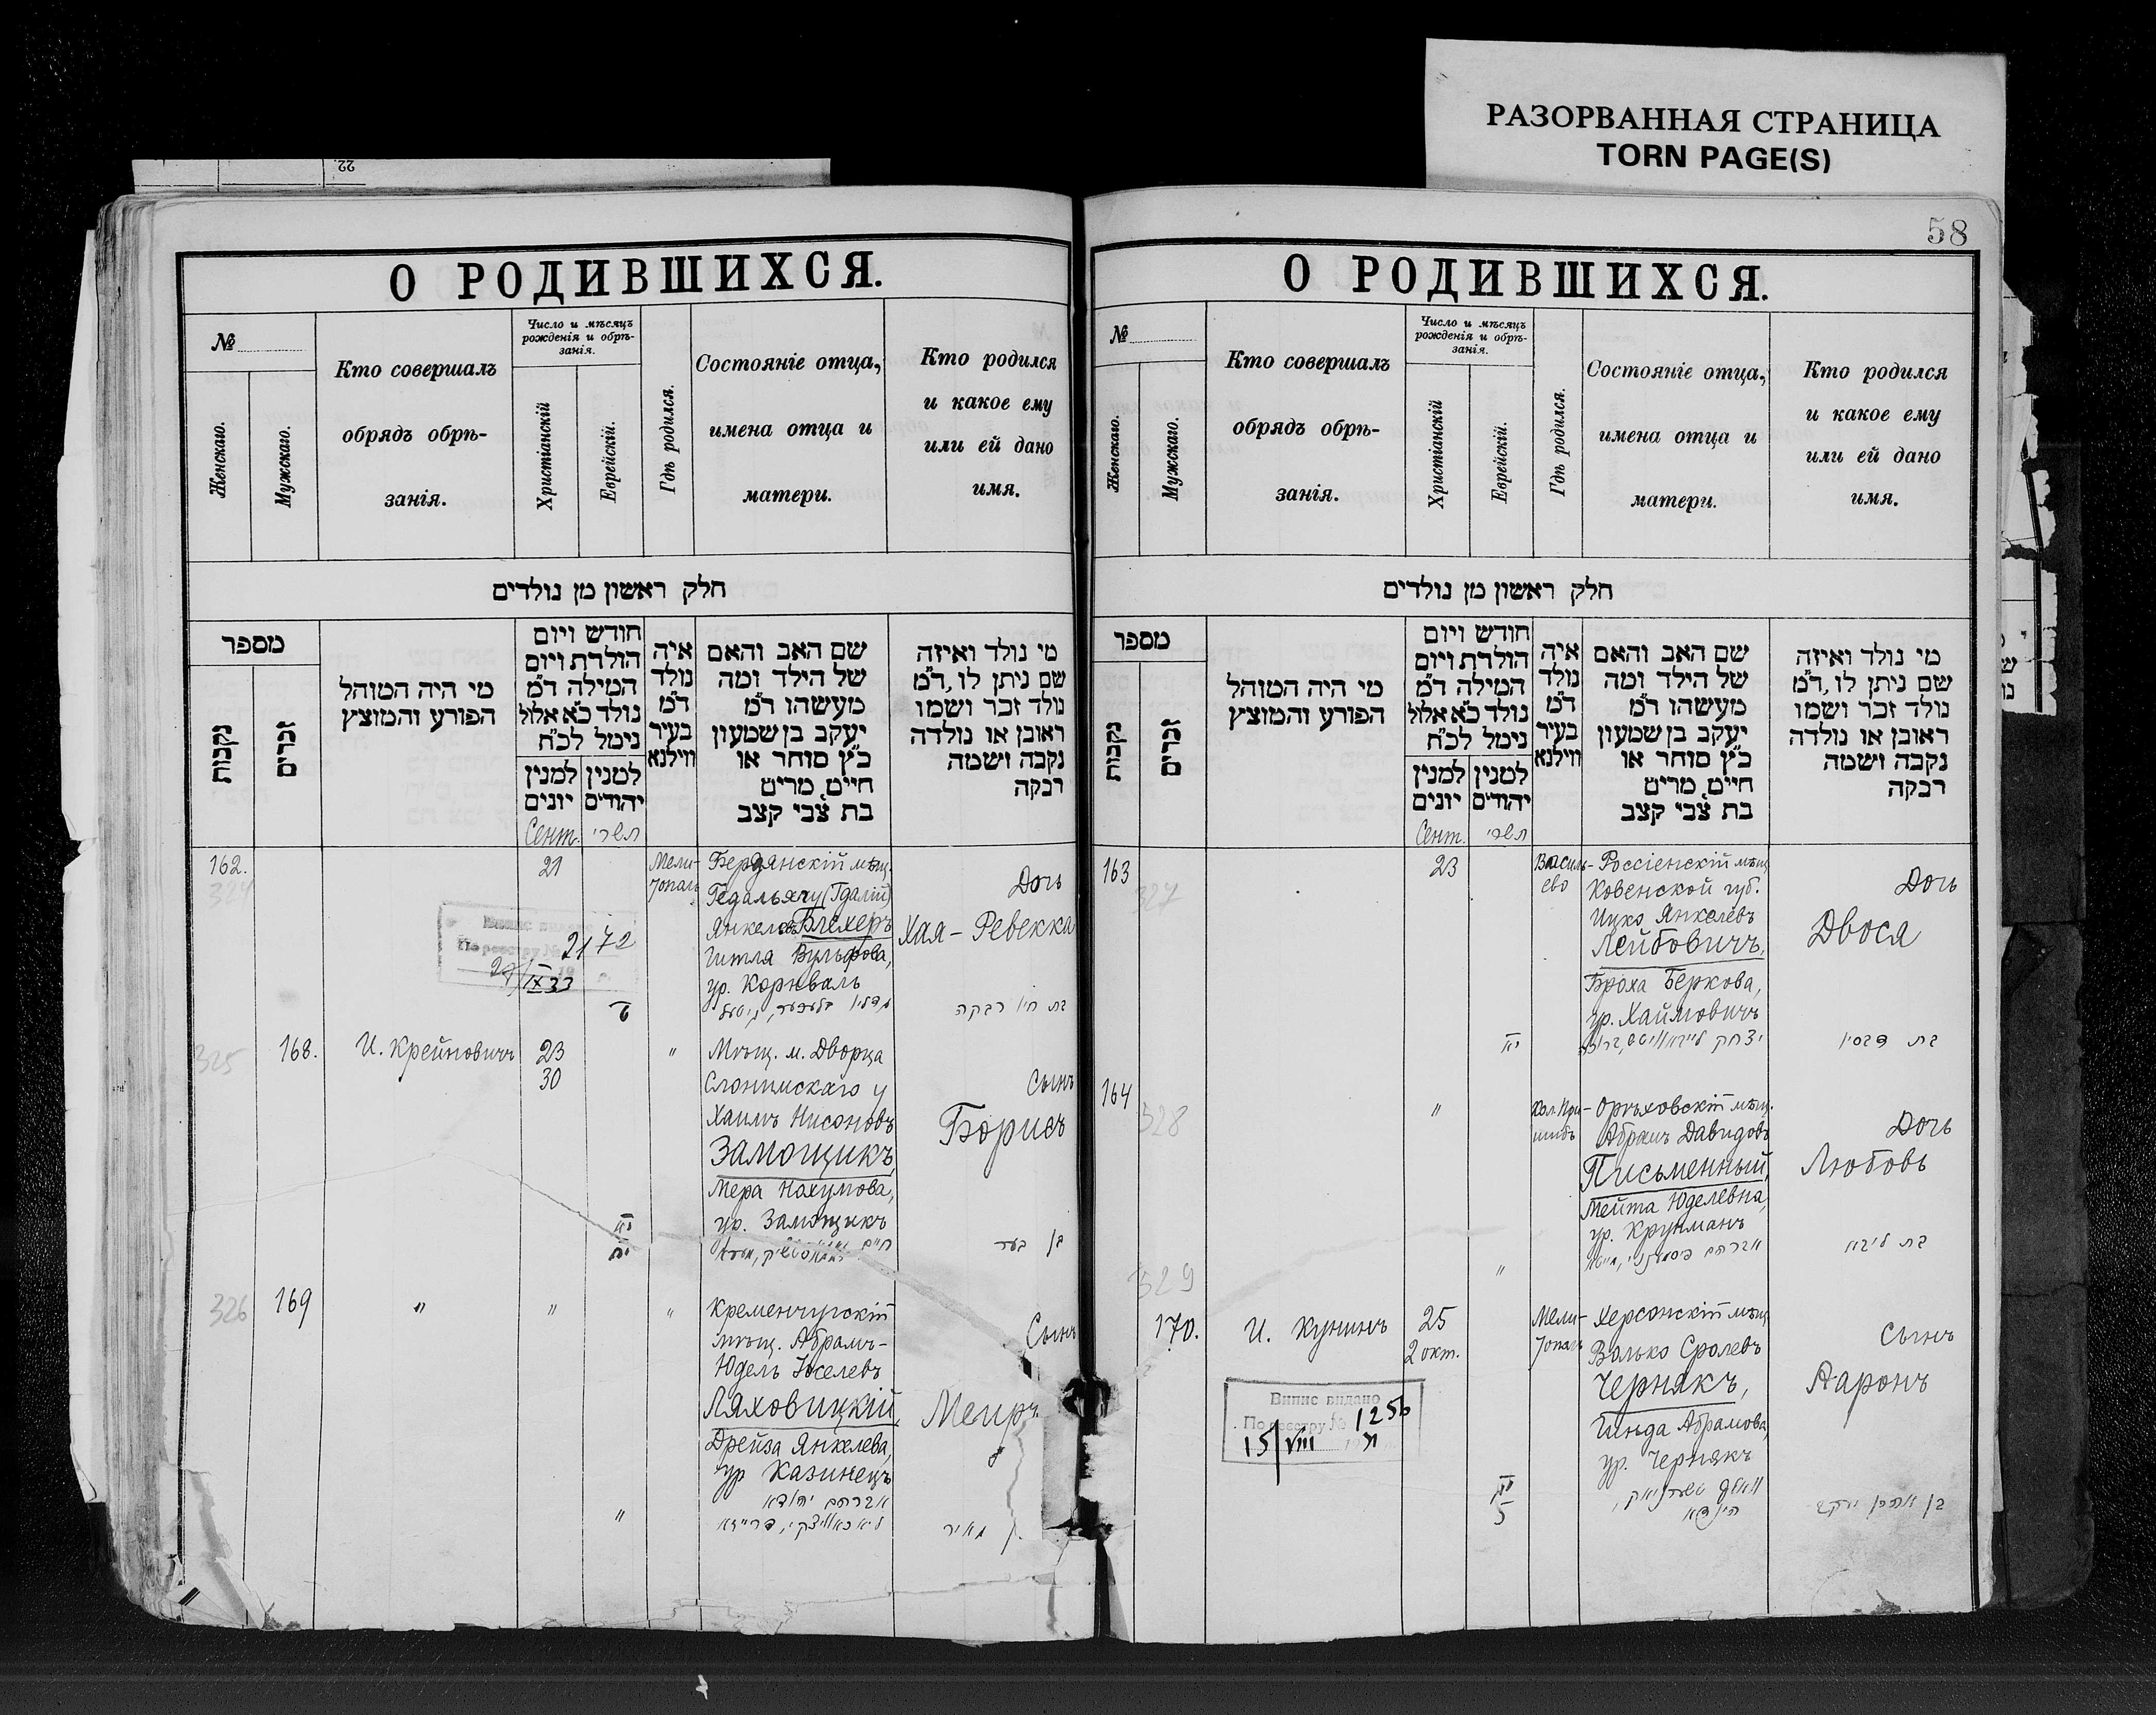 РАЗОРВАННАЯ СТРАНИЦА
TORN PAGE(S)
22
О РОДИВШИХСЯ.
№
Женскаго.
Мужскаго.
Кто совершалъ
обрядъ обрѣ-
занія.
Число и мѣсяцъ
рожденія и обрѣ-
занія.
Христіанскій
Еврейскій.
Гдѣ родился.
Состояніе отца,
имена отца и
матери.
Кто родился
и какое ему
или ей дано
имя.
חלק ראשון מן נולדים
מספר
נקבות
זכרים
מי היה המוהל
הפורע והמוצץ
חודש ויום
הולדת ויום
המילה ד״מ
נולד כ״א אלול
נימל לכ״ח
למנין
יונים
למנין
יהודים
איה
נולד
ד״מ
בעיר
ווילנא
שם האב והאם
של הילד ומה
מעשהו ד״מ
יעקב בן שמעון
כ״ץ סוחר או
חיים, מרים
בת צבי קצב
מי נולד ואיזה
שם ניתן לו, ד״מ
נולד זכר ושמו
ראובן או נולדה
נקבה ושמה
רבקה
Сент.
תשרי
162.
324
21
Мели-
тополь
Бердянскій мѣщ.
Гедальягу (Гдалій)
Янкелевъ Блехеръ
Гитля Вульфова,
ур. Корнваль
Дочь
Хая - Ревекка
בת חיה רבקה
По реестру №
2172
IX 33
ט
325
168.
И. Крейновичъ
23
30
"
Мѣщ. м. Дворца
Слонимскаго у
Хаимъ Нисоновъ
Замощикъ,
Мера Нахумова,
ур. Замощикъ
Сынъ
Борисъ
יא
יח
בן בער
326
169
"
"
"
Кременчугскій
мѣщ. Абрамъ-
Юдель Іоселевъ
Ляховицкій,
Дрейза Янкелева,
ур Казинецъ
אברהם יהודא
ליאכאוויצקי, דרייזא
"
Сынъ
Меиръ
מאיר
58
О РОДИВШИХСЯ.
№
Женскаго.
Мужскаго.
Кто совершалъ
обрядъ обрѣ-
занія.
Число и мѣсяцъ
рожденія и обрѣ-
занія.
Христіанскій
Еврейскій.
Гдѣ родился.
Состояніе отца,
имена отца и
матери.
Кто родился
и какое ему
или ей дано
имя.
חלק ראשון מן נולדים
מספר
נקבות
זכרים
מי היה המוהל
הפורע והמוצץ
חודש ויום
הולדת ויום
המילה ד״מ
נולד כ״א אלול
נימל לכ״ח
למנין
יונים
למנין
יהודים
איה
נולד
ד״מ
בעיר
ווילנא
שם האב והאם
של הילד ומה
מעשהו ד״מ
יעקב בן שמעון
כ״ץ סוחר או
חיים, מרים
בת צבי קצב
מי נולד ואיזה
שם ניתן לו, ד״מ
נולד זכר ושמו
ראובן או נולדה
נקבה ושמה
רבקה
Сент.
תשרי
163
327
23
Василь-
ево
Россіенскій мѣщ.
Ковенской губ.
Ицко Янкелевъ
Лейбовичъ,
Броха Беркова,
ур. Хаймовичъ
יצחק לייבאוויטש, ברוכה
יא
Дочь
Двося
בת דבסיה
164
328
"
Кол. При-
шибъ
Орѣховскій мѣщ.
Абрамъ Давидовъ
Письменный,
Мейта Юделевна,
ур. Крупманъ
"
Дочь
Любовь
בת ליבא
329
170.
И. Кунинъ
25
2 окт.
Мели-
тополь
Херсонскій мѣщ.
Волько Сролевъ
Чернякъ,
Гинда Абрамова,
ур. Чернякъ
וואלף טשערניאק,
הינדא
Сынъ
Ааронъ
Випис видано
По реестру № 1256
15/VIII 31